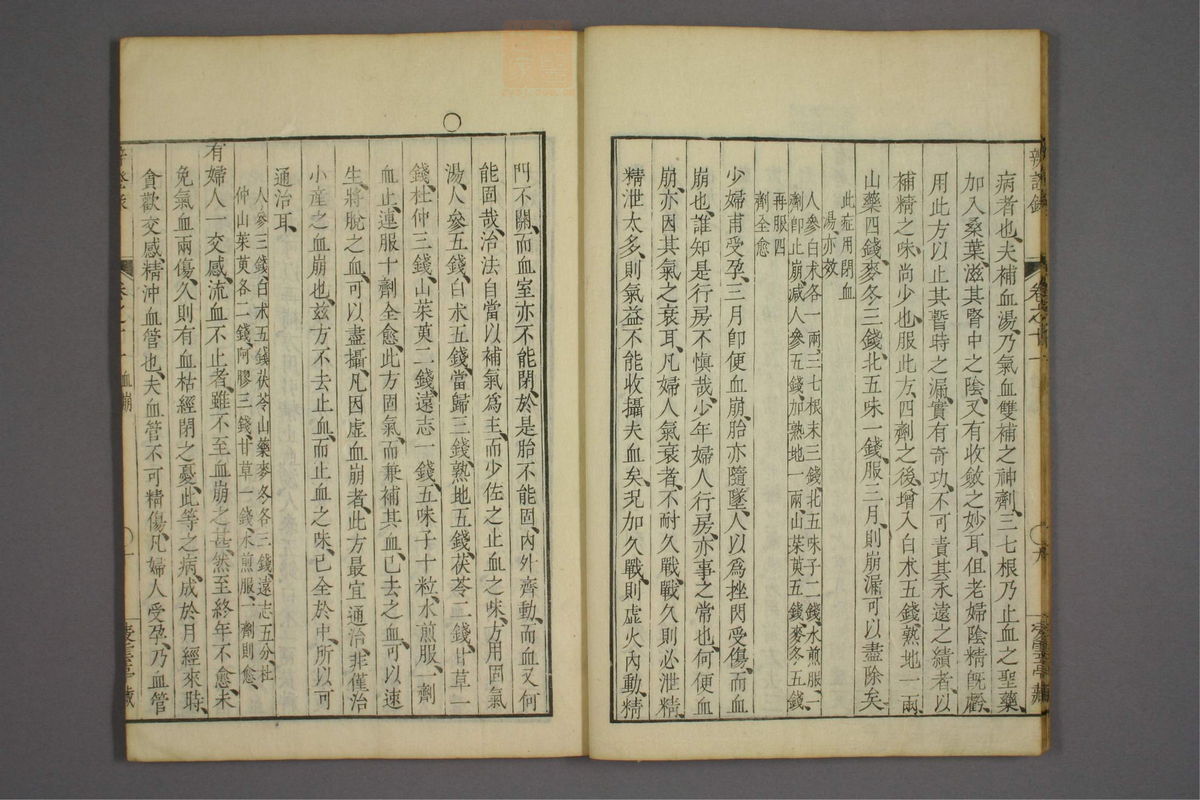 病者也、夫補血湯、乃氣血雙補之神劑、三七根乃止血之聖藥、
加入桑葉、滋其腎中之陰、又有收斂之妙耳、但老婦陰精旣虧、
用此方以止其暫時之漏、實有奇功、不可責其永遠之績者、以
補精之味、尚少也、服此方、四劑之後、增入白朮五錢、熟地一兩、
山藥四錢、麥冬三錢、北五味一錢、服三月、則崩漏可以盡除矣、
此症用閉血
湯、亦效
人參白朮各一兩、三七根末三錢、北五味子二錢、水煎服、一
劑卽止崩、减人參五錢、加熟地一兩、山茱萸五錢、麥冬五錢、
再服四
劑全愈
少婦甫受孕、三月卽便血崩、胎亦隨墜、人以爲挫閃受傷、而血
崩也、誰知是行房不愼哉、少年婦人行房、亦事之常也、何便血
崩、亦因其氣之衰耳、凡婦人氣衰者、不耐久戰、戰久則必泄精、
精泄太多、則氣益不能收攝夫血矣、况加久戰、則虛火內動、精
門不關、而血室亦不能閉、於是胎不能固、內外齊動、而血又何
能固哉、治法自當以補氣爲主、而少佐之止血之味、方用固氣
湯、人參五錢、白朮五錢、當歸三錢、熟地五錢、茯苓二錢、甘草一
錢、杜仲三錢、山茱萸二錢、遠志一錢、五味子十粒、水煎服、一劑
血止、連服十劑全愈、此方固氣、而兼補其血、已去之血、可以速
生、將脫之血、可以盡攝、凡因虛血崩者、此方最宜通治、非僅治
小產之血崩也、玆方不去止血、而止血之味、已全於中、所以可
通治耳、
人參三錢、白朮五錢、茯苓山藥麥冬各三錢、遠志五分、杜
仲山茱萸各二錢、阿膠三錢、甘草一錢、水煎服、一劑則愈、
有婦人一交感、流血不止者、雖不至血崩之甚、然至終年不愈、未
免氣血兩傷、久則有血枯經閉之憂、此等之病、成於月經來時、
貪歡交感、精沖血管也、夫血管不可精傷、凡婦人受孕、乃血管